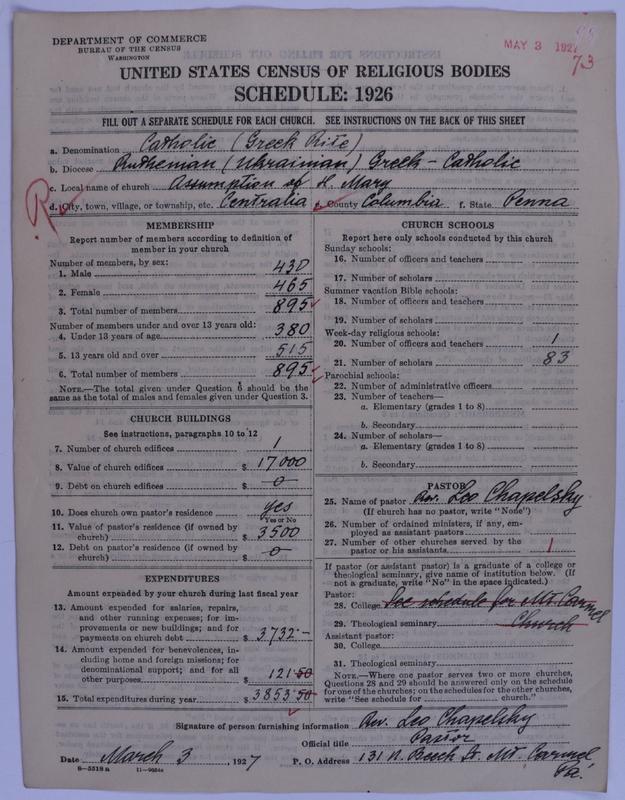 DEPARTMENT OF COMMERCE
BUREAU OF THE CENSUS
WASHINGTON
MAY 3 1927
73
UNITED STATES CENSUS OF RELIGIOUS BODIES
SCHEDULE: 1926
FILL OUT A SEPARATE SCHEDULE FOR EACH CHURCH. SEE INSTRUCTIONS ON THE BACK OF THIS SHEET
a. Denomination Catholic (Greek Rite)
b. Diocese Ruthenian (Ukrainian) Greek-Catholic
c. Local name of church Assumption of St. Mary
d. City, town, village, or township, etc. Centralia e. County Columbia f. State Penna
MEMBERSHIP
Report number of members according to definition of
member in your church
Number of members, by sex:
1. Male 430
2. Female 465
3. Total number of members 895
Number of members under and over 13 years old:
4. Under 13 years of age 380
5. 13 years old and over 515
6. Total number of members 895
NOTE.—The total given under Question 6 should be the
same as the total of males and females given under Question 3.
CHURCH BUILDINGS
See instructions, paragraphs 10 to 12
7. Number of church edifices 1
8. Value of church edifices $ 17000
9. Debt on church edifices $ 0
10. Does church own pastor's residence? yes
Yes or No
11. Value of pastor's residence (if owned by
church) $ 3500
12. Debt on pastor's residence (if owned by
church) $ 0
EXPENDITURES
Amount expended by your church during last fiscal year
13. Amount expended for salaries, repairs,
and other running expenses; for im-
provements or new buildings; and for
payments on church debt $ 3732.—
14. Amount expended for benevolences, in-
cluding home and foreign missions; for
denominational support; and for all
other purposes $ 121.50
15. Total expenditures during year $ 3853.50
CHURCH SCHOOLS
Report here only schools conducted by this church
Sunday schools:
16. Number of officers and teachers
17. Number of scholars
Summer vacation Bible schools:
18. Number of officers and teachers
19. Number of scholars
Week-day religious schools:
20. Number of officers and teachers 1
21. Number of scholars 83
Parochial schools:
22. Number of administrative officers
23. Number of teachers—
a. Elementary (grades 1 to 8)
b. Secondary
24. Number of scholars—
a. Elementary (grades 1 to 8)
b. Secondary
PASTOR
25. Name of pastor Rev. Leo Chapelsky
(If church has no pastor, write "None")
26. Number of ordained ministers, if any, em-
ployed as assistant pastors
27. Number of other churches served by the
pastor or his assistants 1
If pastor (or assistant pastor) is a graduate of a college or
theological seminary, give name of institution below. (If
not a graduate, write "No" in the space indicated.)
Pastor:
28. College See schedule for Mt Carmel
29. Theological seminary Church
Assistant pastor:
30. College
31. Theological seminary
NOTE.—Where one pastor serves two or more churches,
Questions 28 and 29 should be answered only on the schedule
for one of the churches; on the schedules for the other churches,
write "See schedule for church."
Signature of person furnishing information Rev. Leo Chapelsky
Official title Pastor
Date March 3, 1927 P. O. Address 131 N. Beech St. Mt. Carmel
Pa.
8—5518 a